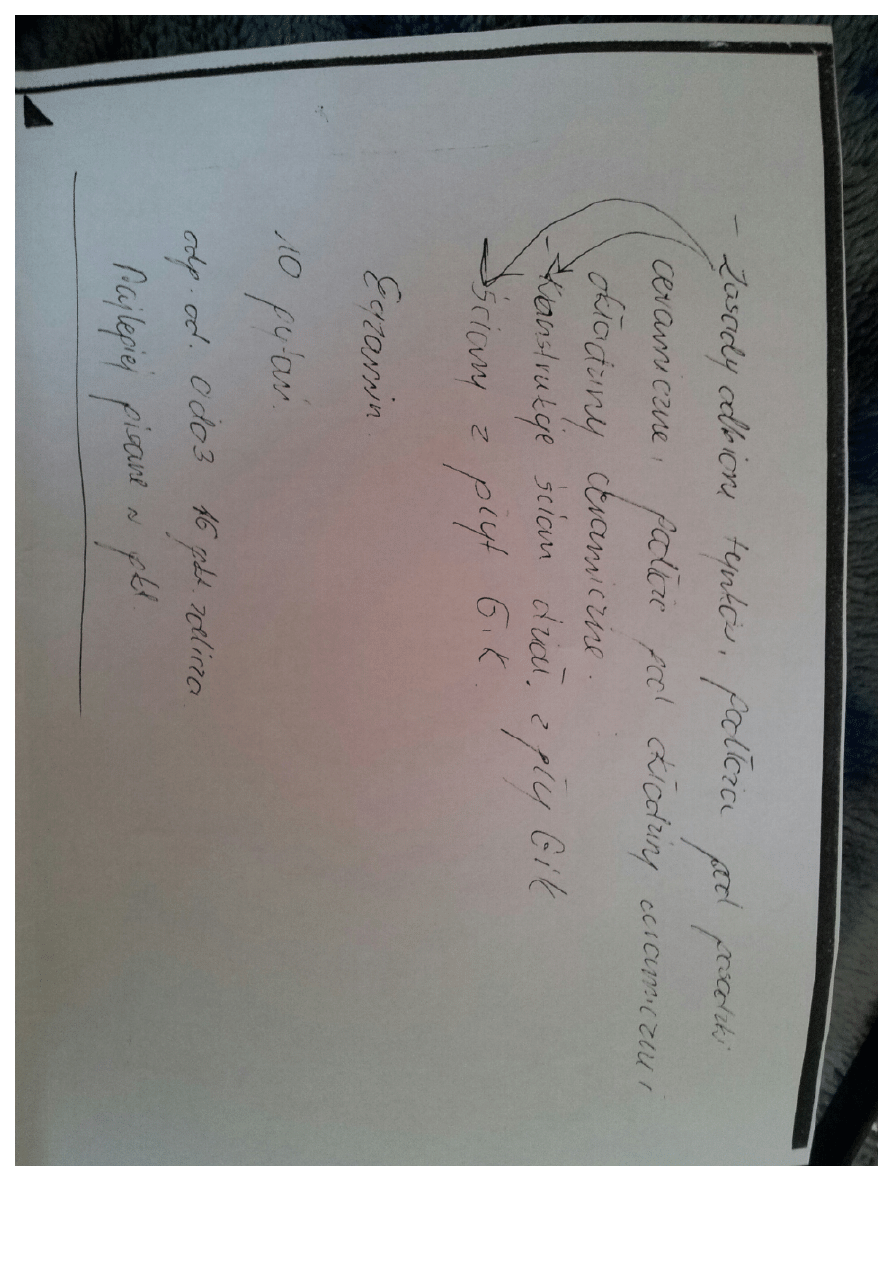 - Zasady odbioru tynków, podłoża pod posadzki
ceramiczne, podłoże pod okładziny ceramiczne,
okładziny ceramiczne.
- Konstrukcje ścian dział. z płyt G.i K
ściany z płyt G.K.
Egzamin.
10 pytań.
odp. od. 0 do 3 16 pkt. zalicza.
Najlepiej pisane w pkt.